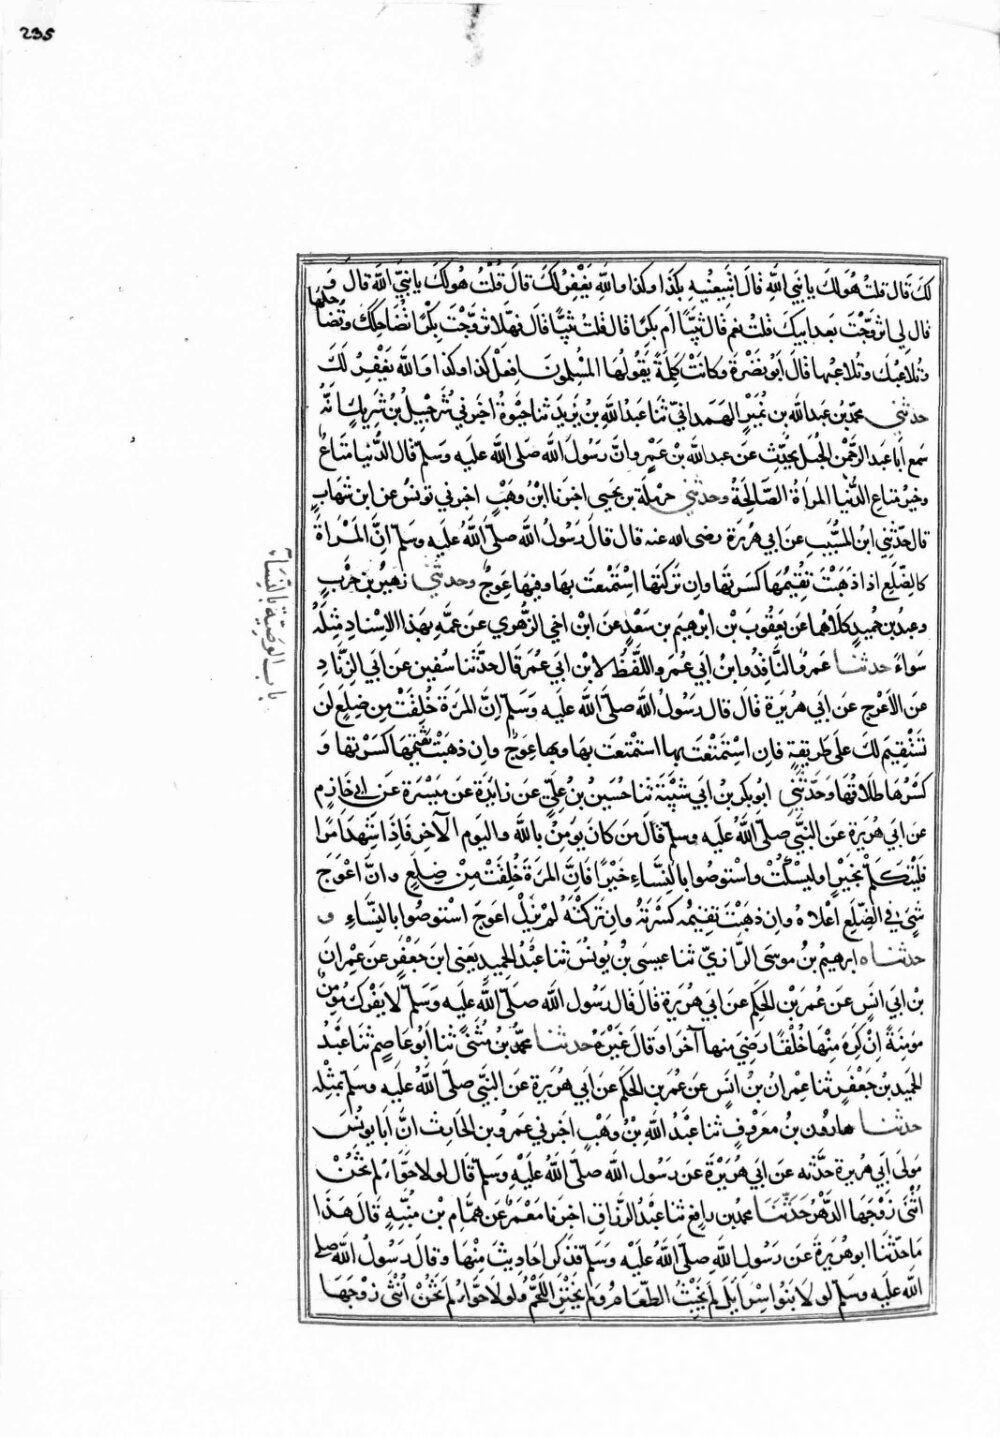 235
لك قال قلت هو لك يا نبي الله قال اتبيعنيه بكذا وكذا والله يغفر لك قال قلت هو لك يا نبي الله قال و
قال لي اتزوجت بعد ابيك قلت نعم قال ثيبا ام بكرا قال قلت ثيبا قال فهلا تزوجت بكرا تضاحكك وتضاحكها
وتلاعبك وتلاعبها قال ابو نضرة وكانت كلمة يقولها المسلمون افعل كذا وكذا والله يغفر لك
حدثني محمد بن عبدالله بن نمير الهمداني ثنا عبدالله بن يزيد ثنا حيوة اخبرني شرحبيل بن شريك انه
سمع ابا عبد الرحمن الحبلي يحدث عن عبدالله بن عمرو ان رسول الله صلى الله عليه وسلم قال الدنيا متاع
وخير متاع الدنيا المراة الصالحة وحدثني حرملة بن يحيى اخبرنا ابن وهب اخبرني يونس عن ابن شهاب
قال حدثني ابن المسيب عن ابي هريرة رضى الله عنه قال قال رسول الله صلى الله عليه وسلم ان المراة
كالضلع اذا ذهبت تقيمها كسرتها وان تركتها استمتعت بها وفيها عوج وحدثني زهير بن حرب
وعبد بن حميد كلاهما عن يعقوب بن ابرهيم بن سعد عن ابن اخي الزهري عن عمه بهذا الاسناد مثله
سواء حدثنا عمرو الناقد وابن ابي عمر واللفظ لابن ابي عمر قال حدثنا سفين عن ابي الزناد
عن الاعرج عن ابي هريرة قال قال رسول الله صلى الله عليه وسلم ان المرة خلقت من ضلع لن
تستقيم لك على طريقة فان استمتعت بها استمتعت بها وبها عوج وان ذهبت تقيمها كسرتها و
كسرها طلاقها وحدثني ابوبكر بن ابي شيبة ثنا حسين بن علي عن زايدة عن ميسرة عن ابي حازم
عن ابي هريرة عن النبي صلى الله عليه وسلم قال من كان يومن بالله واليوم الآخر فاذا شهد امرا
فليتكلم بخير او ليسكت واستوصوا بالنساء خيرا فان المرة خلقت من ضلع وان اعوج
شيء في الضلع اعلاه وان ذهبت تقيمه كسرته وان تركته لم يزل اعوج استوصوا بالنساء و
حدثناه ابرهيم بن موسى الرازي ثنا عيسى بن يونس ثنا عبد الحميد يعني ابن جعفر عن عمران
بن ابي انس عن عمر بن الحكم عن ابي هريرة قال قال رسول الله صلى الله عليه وسلم لا يفرك مومن
مومنة ان كره منها خلقا رضي منها آخر او قال غيره حدثنا محمد بن مثنى ثنا ابو عاصم ثنا عبد
الحميد بن جعفر ثنا عمران بن انس عن عمر بن الحكم عن ابي هريرة عن النبي صلى الله عليه وسلم بمثله
حدثنا هارون بن معروف ثنا عبد الله بن وهب اخبرني عمرو بن الحارث ان ابا يونس
مولى ابي هريرة حدثه عن ابي هريرة عن رسول الله صلى الله عليه وسلم قال لولا حواء لم تخن
انثى زوجها الدهر حدثنا محمد بن رافع ثنا عبد الرزاق اخبرنا معمر عن همام بن منبه قال هذا
ما حدثنا ابو هريرة عن رسول الله صلى الله عليه وسلم فذكر احاديث منها وقال رسول الله صلى
الله عليه وسلم لولا بنوا اسرايل لم يخبث الطعام ولم يخنز اللحم ولولا حواء لم تخن انثى زوجها
باب الوصية بالنساء